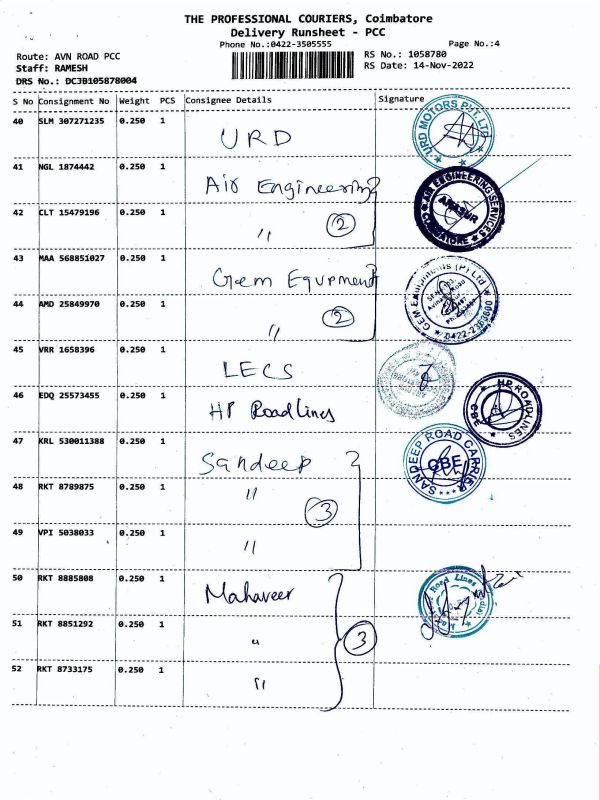 THE PROFESSIONAL COURIERS, Coimbatore
Delivery Runsheet - PCC
Phone No.:0422-3505555
Page No.:4
Route: AVN ROAD PCC
RS No.: 1058780
Staff: RAMESH
RS Date: 14-Nov-2022
DRS No.: DCJB105878004
S No Consignment No Weight PCS Consignee Details Signature
40 SLM 307271235 0.250 1 URD
URD MOTORS PVT. LTD
41 NGL 1874442 0.250 1 Air Engineering
AIR ENGINEERING SERVICES
COIMBATORE
42 CLT 15479196 0.250 1 " 2
43 MAA 568851027 0.250 1 Gem Equpment
GEM Equipments (P) Ltd
0422-2363800
44 AMD 25849970 0.250 1 " 2
45 VRR 1658396 0.250 1 LECS
46 EDQ 25573455 0.250 1 HP Roadlines
HP ROADLINES
CBE
47 KRL 530011388 0.250 1 Sandeep
SANDEEP ROAD CARRIER
CBE
48 RKT 8789875 0.250 1 " 3
49 VPI 5038033 0.250 1 "
50 RKT 8885808 0.250 1 Mahaveer
Road Lines
51 RKT 8851292 0.250 1 " 3
52 RKT 8733175 0.250 1 "